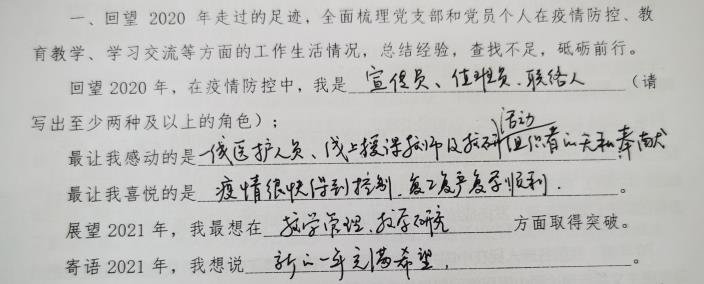 一、回望 2020 年走过的足迹，全面梳理党支部和党员个人在疫情防控、教
育教学、学习交流等方面的工作生活情况，总结经验，查找不足，砥砺前行。
回望 2020 年，在疫情防控中，我是 宣传员、值班员、联络人 （请
写出至少两种及以上的角色）；
最让我感动的是 一线医护人员、线上授课教师及教研活动组织者的无私奉献
最让我喜悦的是 疫情很快得到控制、复工复产复学顺利. 。
展望 2021 年，我最想在 教学管理、教学研究 方面取得突破。
寄语 2021 年，我想说 新的一年充满希望. 。